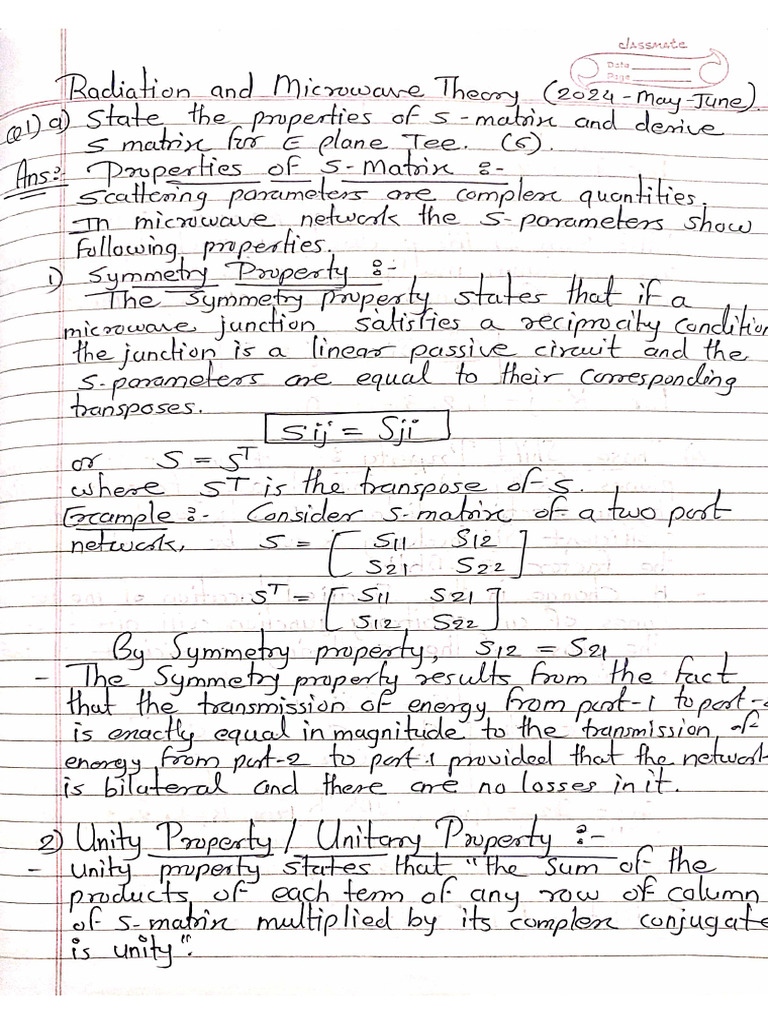 classmate
Date
Page
Radiation and Microwave Theory (2024-May-June)
Q1) a) State the properties of S-matrix and derive
S matrix for E plane Tee. (6).
Ans:- Properties of S-Matrix :-
Scattering parameters are complex quantities.
In microwave network the S-parameters show
following properties.
1) Symmetry Property :-
The Symmetry property states that if a
microwave junction satisfies a reciprocity condition
the junction is a linear passive circuit and the
S-parameters are equal to their corresponding
transposes.
Sij = Sji
or S = S^T
where S^T is the transpose of S.
Example :- Consider S-matrix of a two port
network, S = [ S11 S12
S21 S22 ]
S^T = [ S11 S21
S12 S22 ]
By Symmetry property, S12 = S21
- The Symmetry property results from the fact
that the transmission of energy from port-1 to port-
is exactly equal in magnitude to the transmission of
energy from port-2 to port-1 provided that the network
is bilateral and there are no losses in it.
2) Unity Property / Unitary Property :-
- Unity property states that "the sum of the
products of each term of any row of column
of S-matrix multiplied by its complex conjugate
is unity".